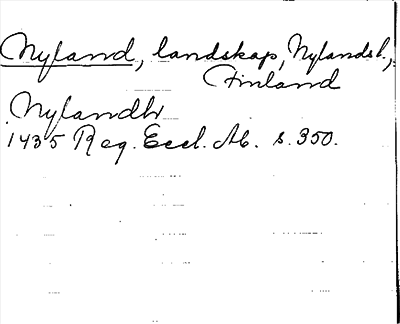 Nyland, landskap, Nylands l.,
Finland
Nylandh
1435 Reg. Eccl. Ab. s. 350.